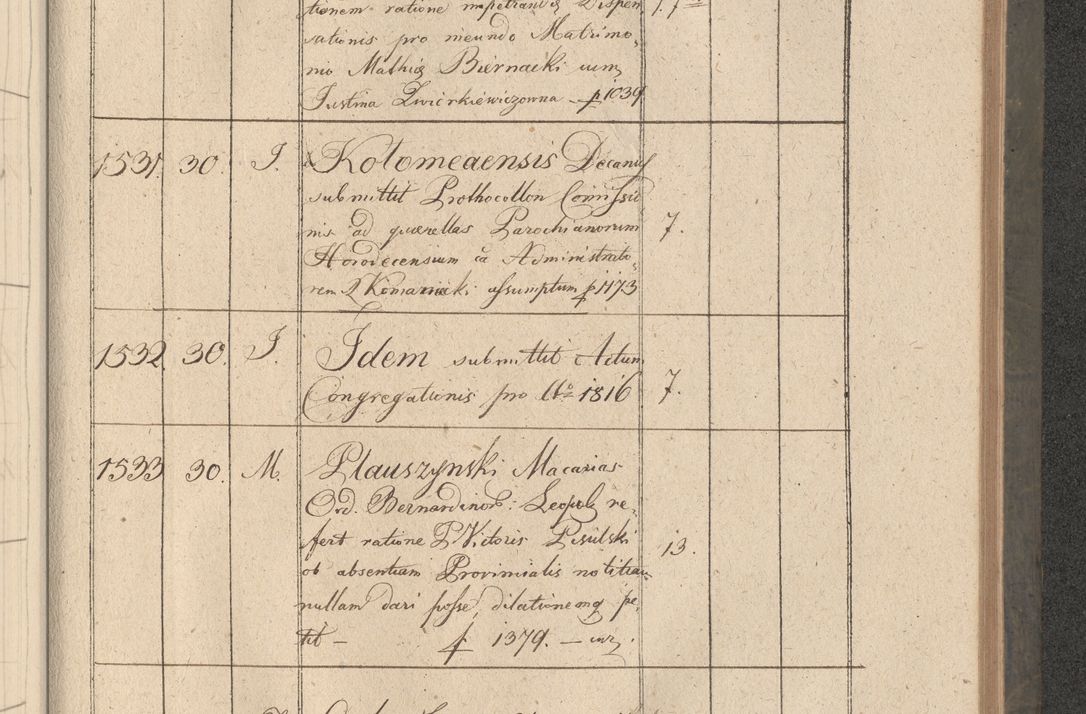 tionem ratione impetrandæ Dispen
sationis pro ineundo Matrimo,
nio Mathiæ Biernacki cum
Justina Zwierkiewiczowna p 1039
1531. 30. J. Kolomeaensis Decanus
submittit Prothocollon Comissio
nis ad querellas Parochianorum 7.
Horodecensium ca Administrato,
rem L Komarnicki assumptum p 1173
1532. 30. J. Idem submittit Actum
Congregationis pro Ao 1816 7.
1533 30. M. Plauszynski Macarias
Ord. Bernardinor: Leopol re,
fert ratione P Victoris Pisulski 13.
ob absentiam Provincialis notitiam
nullam dari posse, dilationemq pe,
tit — p 1379. —